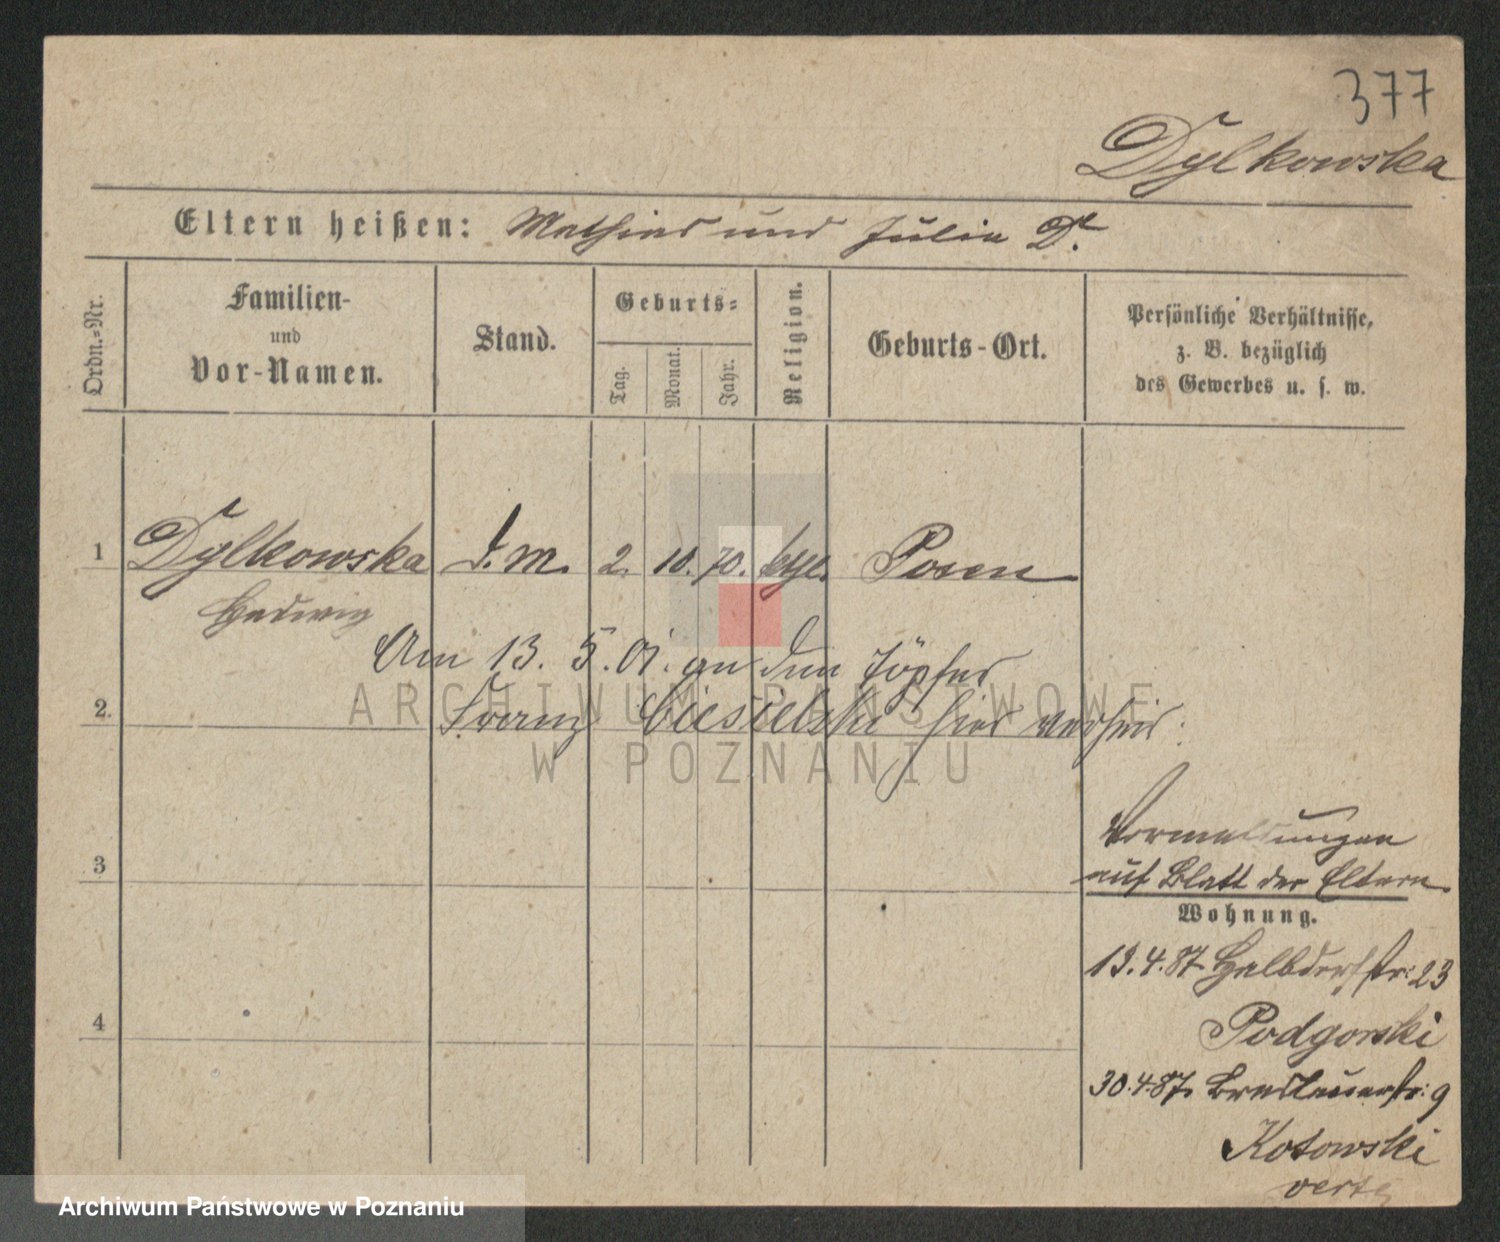 377
Dylkowska
Eltern heißen: Mathias und Julia D.
Ordn.-Nr.
Familien-
und
Vor-Namen.
Stand.
Geburts-
Tag.
Monat.
Jahr.
Religion.
Geburts-Ort.
Persönliche Verhältnisse,
z. B. bezüglich
des Gewerbes u. s. w.
1 Dylkowska d. m. 2. 10. 70. kthl. Posen
Hedwig
Am 13. 5. 01. an den Töpfer
2. Franz Ciesielski hier verheir:
ARCHIWUM PAŃSTWOWE
W POZNANIU
Vormeldungen
auf Blatt der Eltern.
3
Wohnung.
13.4.87 Halbdorfstr: 23
Podgorski
4
30.4.87. Breslauerstr: 9
Kotowski
verte
Archiwum Państwowe w Poznaniu